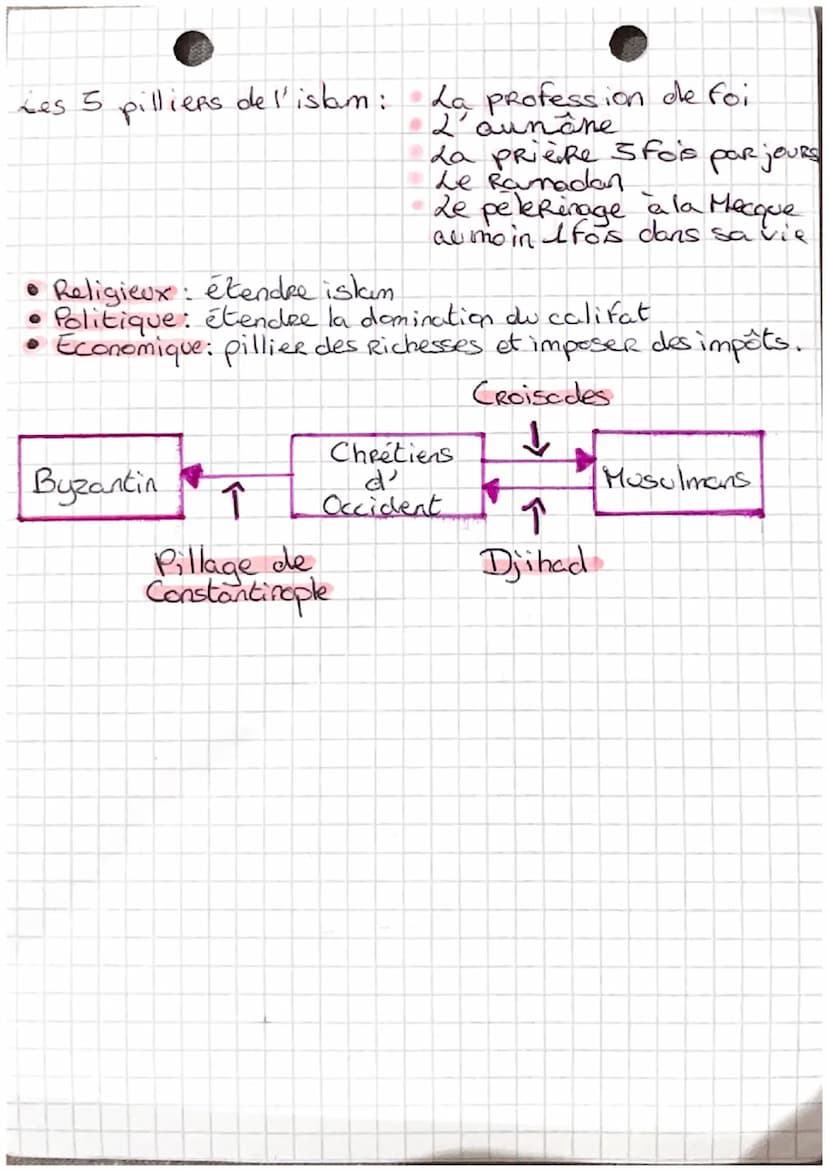 Les 5 pilliers de l'islam :
• La profession de foi
• L'aunâne
• La prière 5 fois par jours
• Le Ramadan
• Le pèlerinage à la Mecque
au moin 1 fois dans sa vie
• Religieux : étendre islam
• Politique : étendre la domination du califat
• Économique : pillier des richesses et imposer des impôts.
Croisades
Byzantin
Chrétiens
d'
Occident
Musulmans
Pillage de
Constantinople
Djihad